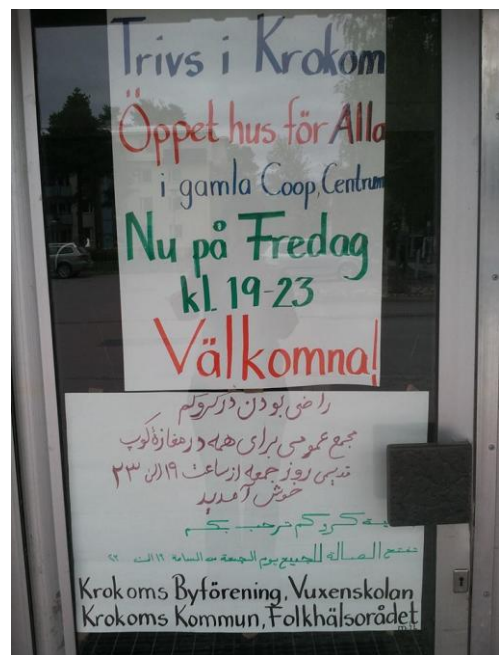 Trivs i Krokom
Öppet hus för Alla
i gamla Coop, Centrum
Nu på Fredag
kl. 19-23
Välkomna!
راضی بودن در کروکم
مجمع عمومی برای همه در مغازه کوپ
قدیمی روز جمعه از ساعت ۱۹ الی ۲۳
خوش آمدید
ترحب بكم
تفتح الصالة للجميع يوم الجمعة من الساعة
Krokoms Byförening, Vuxenskolan
Krokoms Kommun, Folkhälsorådet
m.fl.